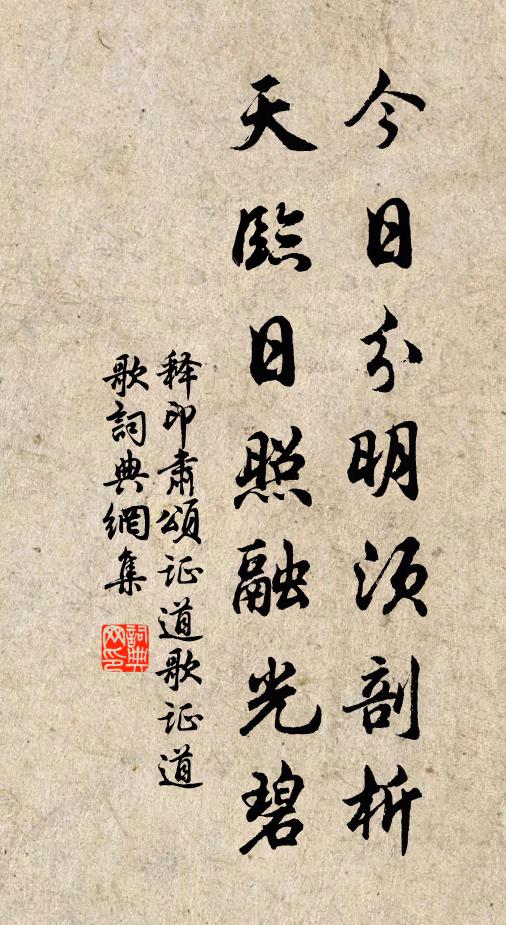 今日分明須剖析
天臨日照融光碧
释印肃頌证道歌证道
歌詞典網集
詞典
网印